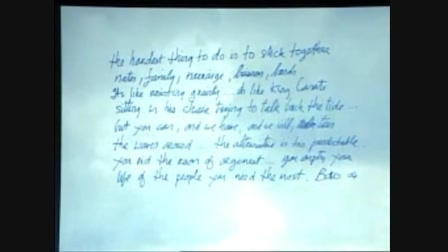 the hardest thing to do is to stick together
mates, family, marriage, business, bands
It's like resisting gravity ... it's like King Canute
sitting in his chair trying to talk back the tide ...
but you can, and we have, and we will, turn
the waves around ... the alternative is too predictable ...
you rid the room of argument ... you empty your
life of the people you need the most. Bono